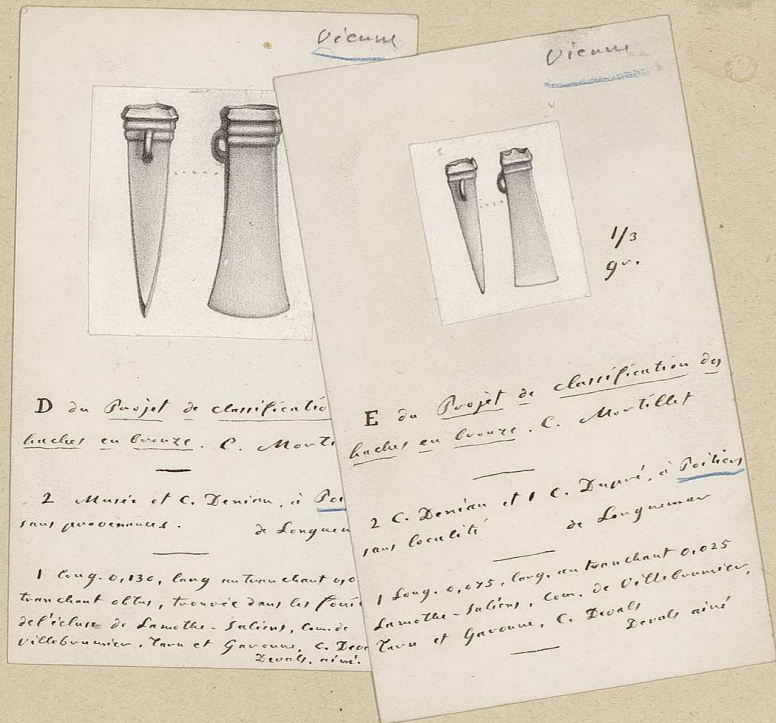 Vienne
D du Projet de classificatio
haches en bronze. C. Morti
2 Musée et C. Denian, à Poi
sans provenances. de Longuem
1 long. 0,130, larg au tranchant 0,0
tranchant obtus, trouvée dans les foui
de l'écluse de Lamothe-Saliens, com. de
Villebrumier, Tarn et Garonne, C. Deva
Devals, ainé.
Vienne
1/3
gr.
E du Projet de classification des
haches en bronze. C. Mortillet
2 C. Denian et 1 C. Dupré, à Poitiers
sans localité de Longuemar
1 Long. 0,075, larg. au tranchant 0,025
Lamothe-Saliens, com. de Villebrumier,
Tarn et Garonne, C. Devals
Devals ainé